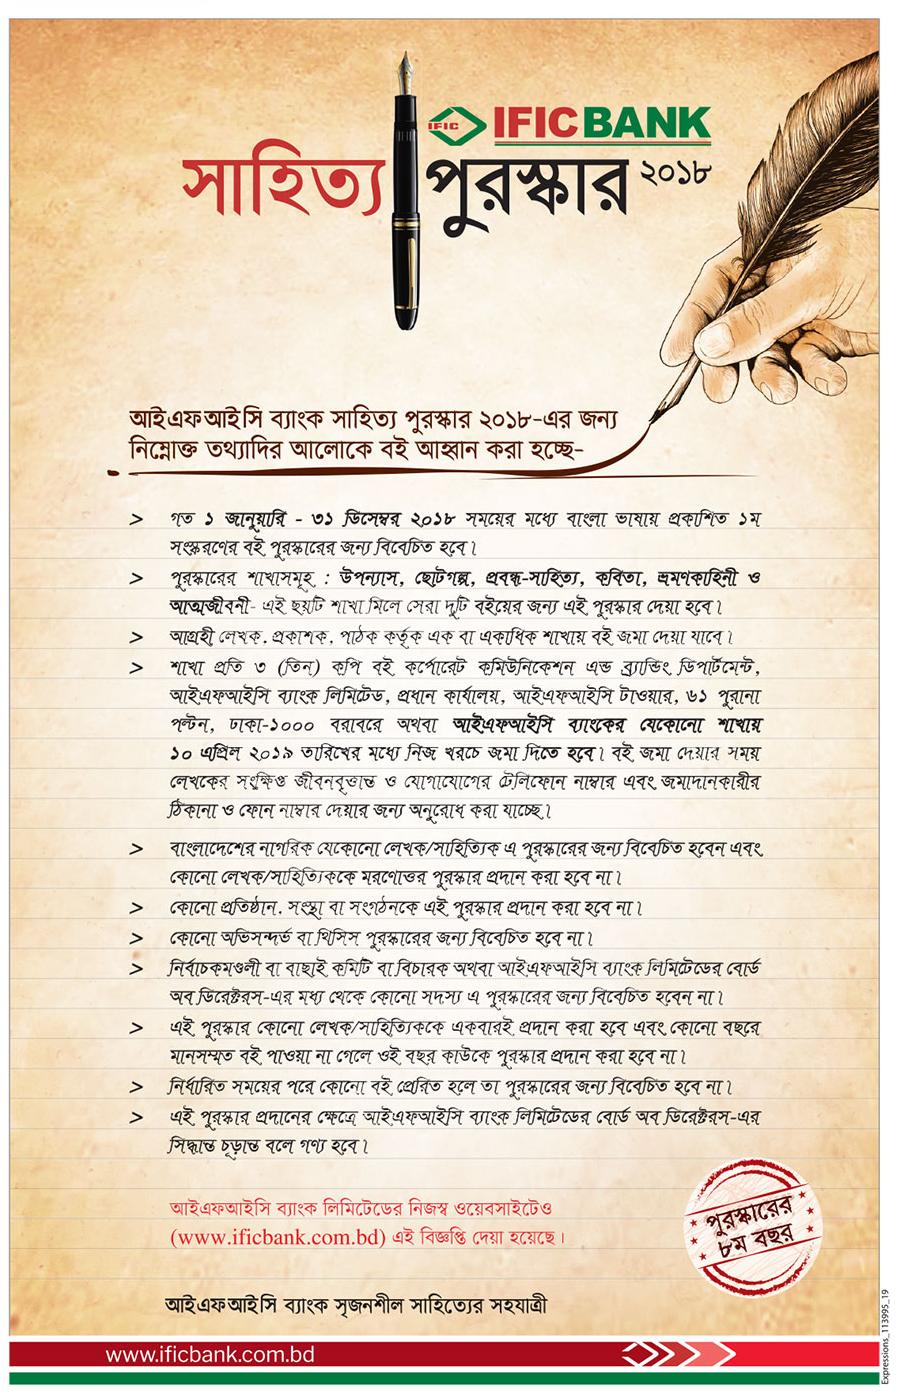 IFIC
IFIC BANK
সাহিত্য পুরস্কার ২০১৮
আইএফআইসি ব্যাংক সাহিত্য পুরস্কার ২০১৮-এর জন্য
নিম্নোক্ত তথ্যাদির আলোকে বই আহ্বান করা হচ্ছে-
> গত ১ জানুয়ারি - ৩১ ডিসেম্বর ২০১৮ সময়ের মধ্যে বাংলা ভাষায় প্রকাশিত ১ম
সংস্করণের বই পুরস্কারের জন্য বিবেচিত হবে।
> পুরস্কারের শাখাসমূহ : উপন্যাস, ছোটগল্প, প্রবন্ধ-সাহিত্য, কবিতা, ভ্রমণকাহিনী ও
আত্মজীবনী- এই ছয়টি শাখা মিলে সেরা দুটি বইয়ের জন্য এই পুরস্কার দেয়া হবে।
> আগ্রহী লেখক, প্রকাশক, পাঠক কর্তৃক এক বা একাধিক শাখায় বই জমা দেয়া যাবে।
> শাখা প্রতি ৩ (তিন) কপি বই কর্পোরেট কমিউনিকেশন এন্ড ব্র্যান্ডিং ডিপার্টমেন্ট,
আইএফআইসি ব্যাংক লিমিটেড, প্রধান কার্যালয়, আইএফআইসি টাওয়ার, ৬১ পুরানা
পল্টন, ঢাকা-১০০০ বরাবরে অথবা আইএফআইসি ব্যাংকের যেকোনো শাখায়
১০ এপ্রিল ২০১৯ তারিখের মধ্যে নিজ খরচে জমা দিতে হবে। বই জমা দেয়ার সময়
লেখকের সংক্ষিপ্ত জীবনবৃত্তান্ত ও যোগাযোগের টেলিফোন নাম্বার এবং জমাদানকারীর
ঠিকানা ও ফোন নাম্বার দেয়ার জন্য অনুরোধ করা যাচ্ছে।
> বাংলাদেশের নাগরিক যেকোনো লেখক/সাহিত্যিক এ পুরস্কারের জন্য বিবেচিত হবেন এবং
কোনো লেখক/সাহিত্যিককে মরণোত্তর পুরস্কার প্রদান করা হবে না।
> কোনো প্রতিষ্ঠান, সংস্থা বা সংগঠনকে এই পুরস্কার প্রদান করা হবে না।
> কোনো অভিসন্দর্ভ বা থিসিস পুরস্কারের জন্য বিবেচিত হবে না।
> নির্বাচকমণ্ডলী বা বাছাই কমিটি বা বিচারক অথবা আইএফআইসি ব্যাংক লিমিটেডের বোর্ড
অব ডিরেক্টরস-এর মধ্য থেকে কোনো সদস্য এ পুরস্কারের জন্য বিবেচিত হবেন না।
> এই পুরস্কার কোনো লেখক/সাহিত্যিককে একবারই প্রদান করা হবে এবং কোনো বছরে
মানসম্মত বই পাওয়া না গেলে ওই বছর কাউকে পুরস্কার প্রদান করা হবে না।
> নির্ধারিত সময়ের পরে কোনো বই প্রেরিত হলে তা পুরস্কারের জন্য বিবেচিত হবে না।
> এই পুরস্কার প্রদানের ক্ষেত্রে আইএফআইসি ব্যাংক লিমিটেডের বোর্ড অব ডিরেক্টরস-এর
সিদ্ধান্ত চূড়ান্ত বলে গণ্য হবে।
আইএফআইসি ব্যাংক লিমিটেডের নিজস্ব ওয়েবসাইটেও
(www.ificbank.com.bd) এই বিজ্ঞপ্তি দেয়া হয়েছে।
পুরস্কারের
৮ম বছর
আইএফআইসি ব্যাংক সৃজনশীল সাহিত্যের সহযাত্রী
www.ificbank.com.bd
Expressions_113995_19